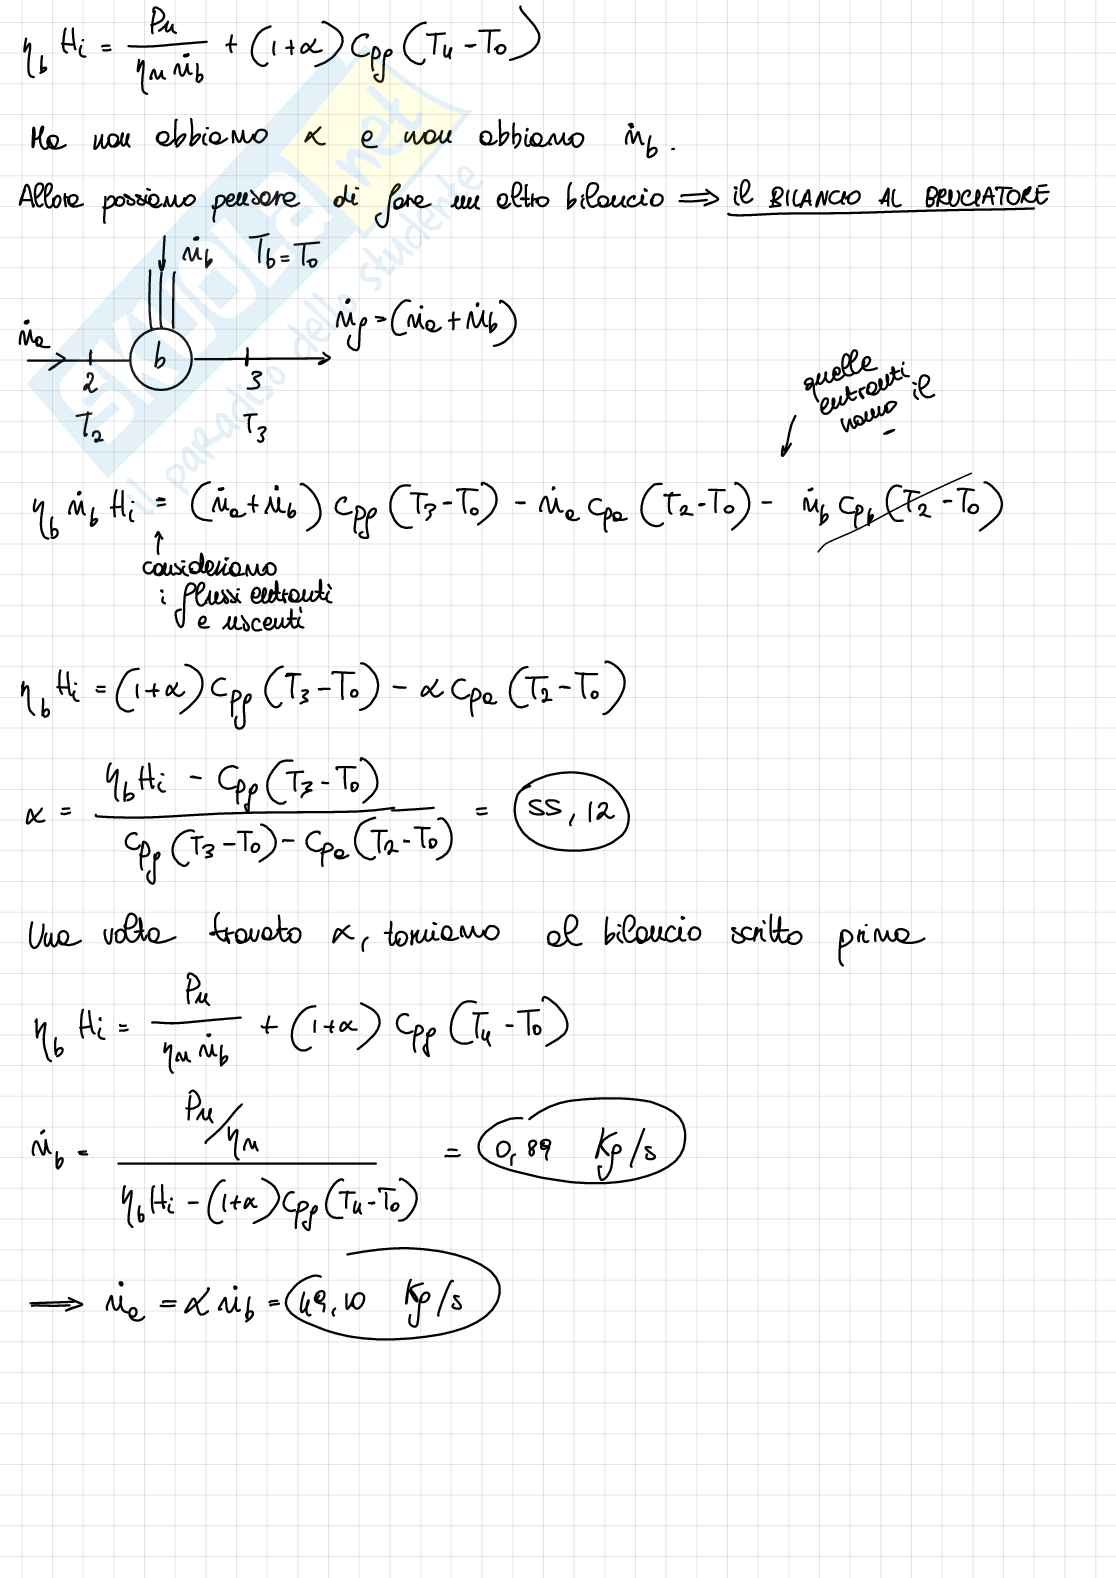 η_b H_i = P_u / (η_m ṁ_b) + (1+α) C_pg (T_4 - T_0)
Ma non abbiamo α e non abbiamo ṁ_b.
Allora possiamo pensare di fare un altro bilancio ⇒ il BILANCIO AL BRUCIATORE
ṁ_b T_b = T_0
ṁ_a
ṁ_g = (ṁ_a + ṁ_b)
b
2 3
T_2 T_3
quelle
entranti
hanno il
-
η_b ṁ_b H_i = (ṁ_a + ṁ_b) C_pg (T_3 - T_0) - ṁ_a C_pa (T_2 - T_0) - ṁ_b C_pb (T_2 - T_0)
↑
consideriamo
i flussi entranti
e uscenti
η_b H_i = (1+α) C_pg (T_3 - T_0) - α C_pa (T_2 - T_0)
α = (η_b H_i - C_pg (T_3 - T_0)) / (C_pg (T_3 - T_0) - C_pa (T_2 - T_0)) = 55,12
Una volta trovato α, torniamo al bilancio scritto prima
η_b H_i = P_u / (η_m ṁ_b) + (1+α) C_pg (T_4 - T_0)
ṁ_b = (P_u / η_m) / (η_b H_i - (1+α) C_pg (T_4 - T_0)) = 0,89 Kg/s
⟹ ṁ_a = α ṁ_b = 49,10 Kg/s
SKUOLA.net
il paradiso dello studente